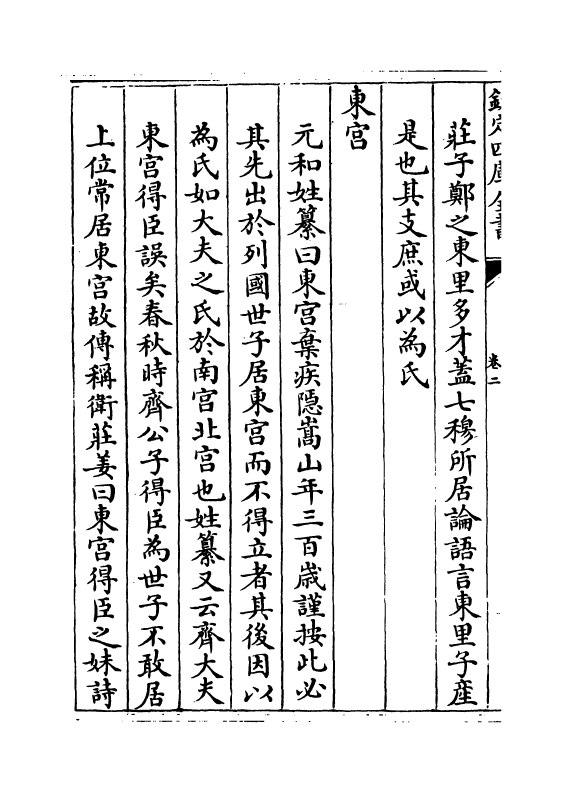 欽定四庫全書
卷二
莊子鄭之東里多才蓋七穆所居論語言東里子産
是也其支庶或以為氏
東宫
元和姓纂曰東宫棄疾隱嵩山年三百歳謹按此必
其先出於列國世子居東宫而不得立者其後因以
為氏如大夫之氏於南宫北宫也姓纂又云齊大夫
東宫得臣誤矣春秋時齊公子得臣為世子不敢居
上位常居東宫故傳稱衛莊姜曰東宫得臣之妹詩